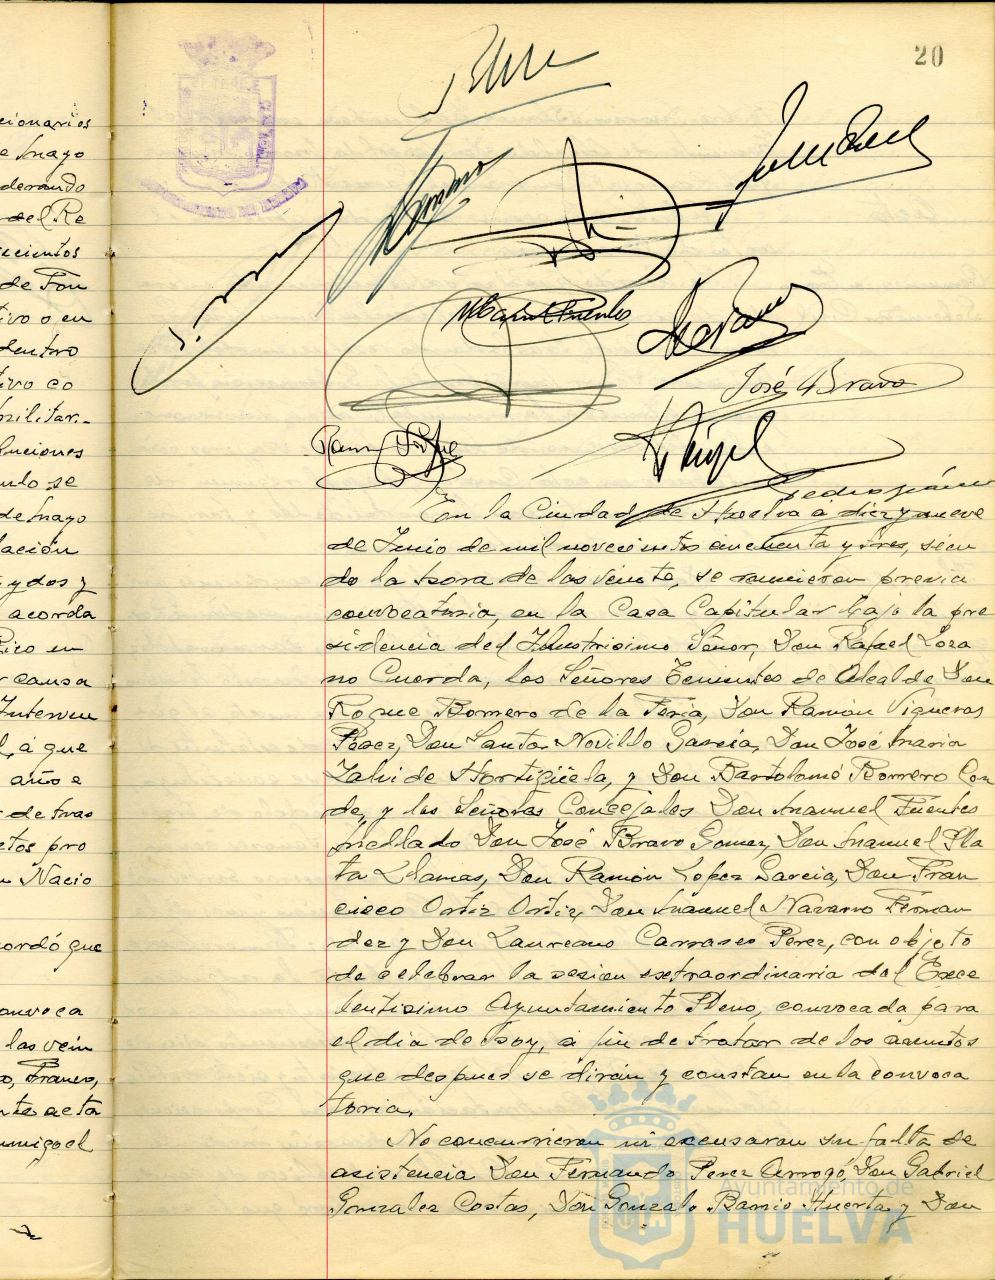 20
José Bravo
En la Ciudad de Huelva á diez y nueve
de Junio de mil novecientos cincuenta y tres, sien
do la hora de las veinte, se reunieron previa
convocatoria, en la Casa Capitular bajo la pre
sidencia del Ilustrisimo Señor, Don Rafael Loza
no Cuerda, los Señores Tenientes de Alcalde Don
Roque Borrero de la Feria, Don Ramón Vigueras
Perez, Don Santos Novillo Garcia, Don José Maria
Jalvide Hortigüela, y Don Bartolomé Romero Con
de, y los Señores Concejales Don Manuel Fuentes
Mellado Don José Bravo Gomez, Don Manuel Pla
ta Llamas, Don Ramón Lopez Garcia, Don Fran
cisco Ortiz Ortiz, Don Manuel Navarro Fernan
dez y Don Laureano Carrasco Perez, con objeto
de celebrar la sesion extraordinaria del Exce
lentisimo Ayuntamiento Pleno, convocada para
el dia de hoy, a fin de tratar de los asuntos
que despues se dirán y constan en la convoca
toria.
No concurrieron ni excusaron su falta de
asistencia Don Fernando Perez Arroyo, Don Gabriel
Gonzalez Costas, Don Gonzalo Barrio Huerta y Don
Ayuntamiento de
HUELVA
cionarios
e Mayo
derando
del Re
scientos
de Fon
tivo o en
dentro
tivo co
bilitar.-
luciones
ndo se
de Mayo
lación
y dos y
acorda
Rico en
causa
Interven
l, á que
año e
de tras
ctos pro
n Nacio
cordó que
onvoca
las vein
o, Franco,
nte acta
migo el